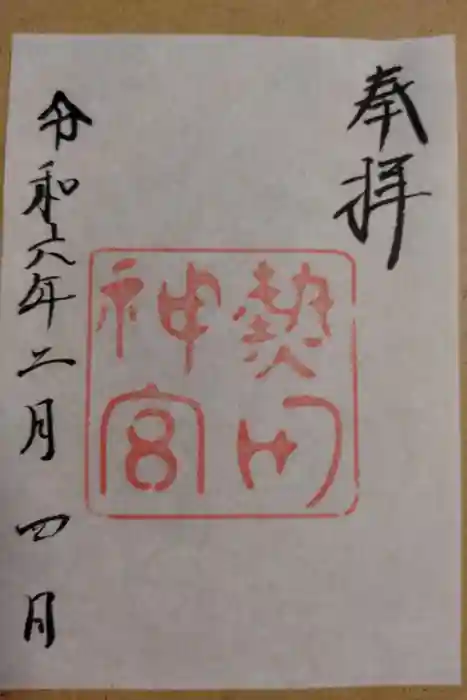 奉拝
熱田
神宮
令和六年二月四月